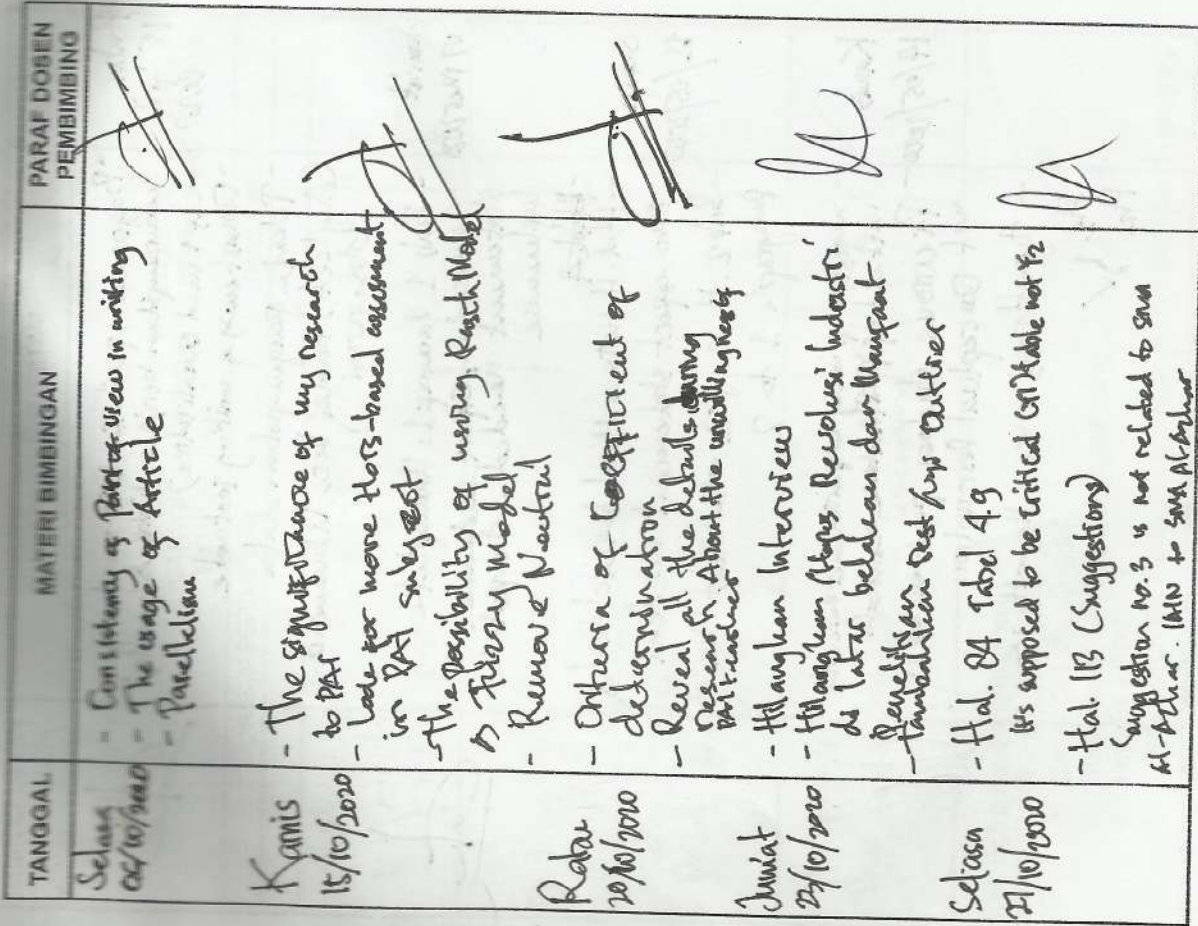 TANGGAL
MATERI BIMBINGAN
PARAF DOSEN
PEMBIMBING
Selasa
06/10/2020
- Consistency of Point of View in writing
- The usage of Article
- Parallelism
Kamis
15/10/2020
- The significance of my research
to PAI
- Look for more Hots-based assessment
in PAI subject
- The Possibility of using Rasch Model
Fuzzy Model
- Remove Neutral
Rabu
20/10/2020
- Criteria of Coefficient of
determination
- Reveal all the details during
research About the unwillingness of
PAI teacher
Jum'at
23/10/2020
- Hilangkan Interview
- Hilangkan Revolusi Industri
as latar belakan dan Manfaat
Penelitian
- Tambahkan Test Outlier
Selasa
27/10/2020
- Hal. 84 Tabel 4.9
It's supposed to be critical table not
- Hal. 113 (Suggestions)
Suggestion no.3 is not related to SMA
Al-Azhar. IAIN to SMA Al-Azhar